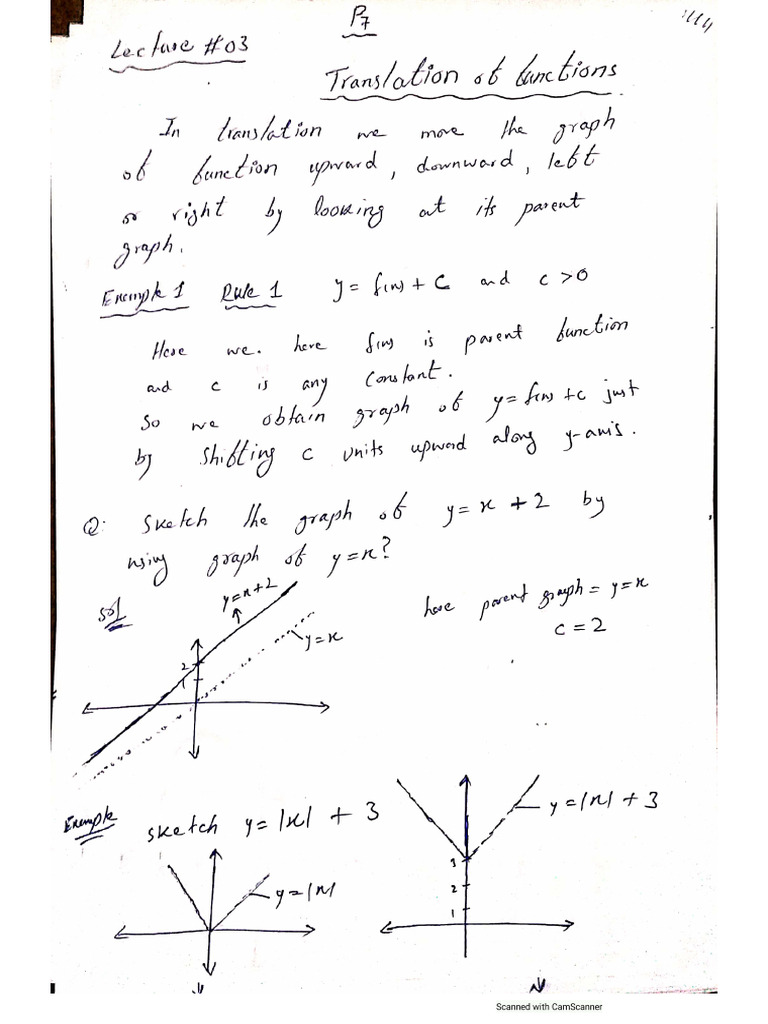 P7
Lecture #03
Translation of functions
In translation we move the graph
of function upward, downward, left
or right by looking at its parent
graph.
Example 1 Rule 1 y = f(x) + C and c > 0
Here we. have f(x) is parent function
and c is any constant.
So we obtain graph of y = f(x) + c just
by shifting c units upward along y-axis.
Q: Sketch the graph of y = x + 2 by
using graph of y = x?
Sol
y = x + 2
y = x
2
1
here parent graph = y = x
c = 2
Example sketch y = |x| + 3
y = |x|
y = |x| + 3
3
2
1
Scanned with CamScanner